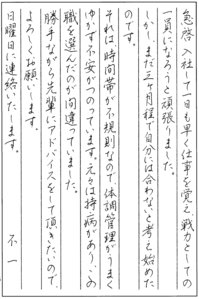 急啓 入社して一日も早く仕事を覚え、戦力としての
一員になろうと頑張りました。
しかし、まだ三ヶ月程で自分には合わないと考え始めた
のです。
それは、時間帯が不規則なので体調管理がうまく
ゆかず不安がつのっています。元々は持病があり、この
職を選んだのが間違っていました。
勝手ながら先輩にアドバイスをして頂きたいので、
よろしくお願いします。
日曜日に連絡いたします。
不一